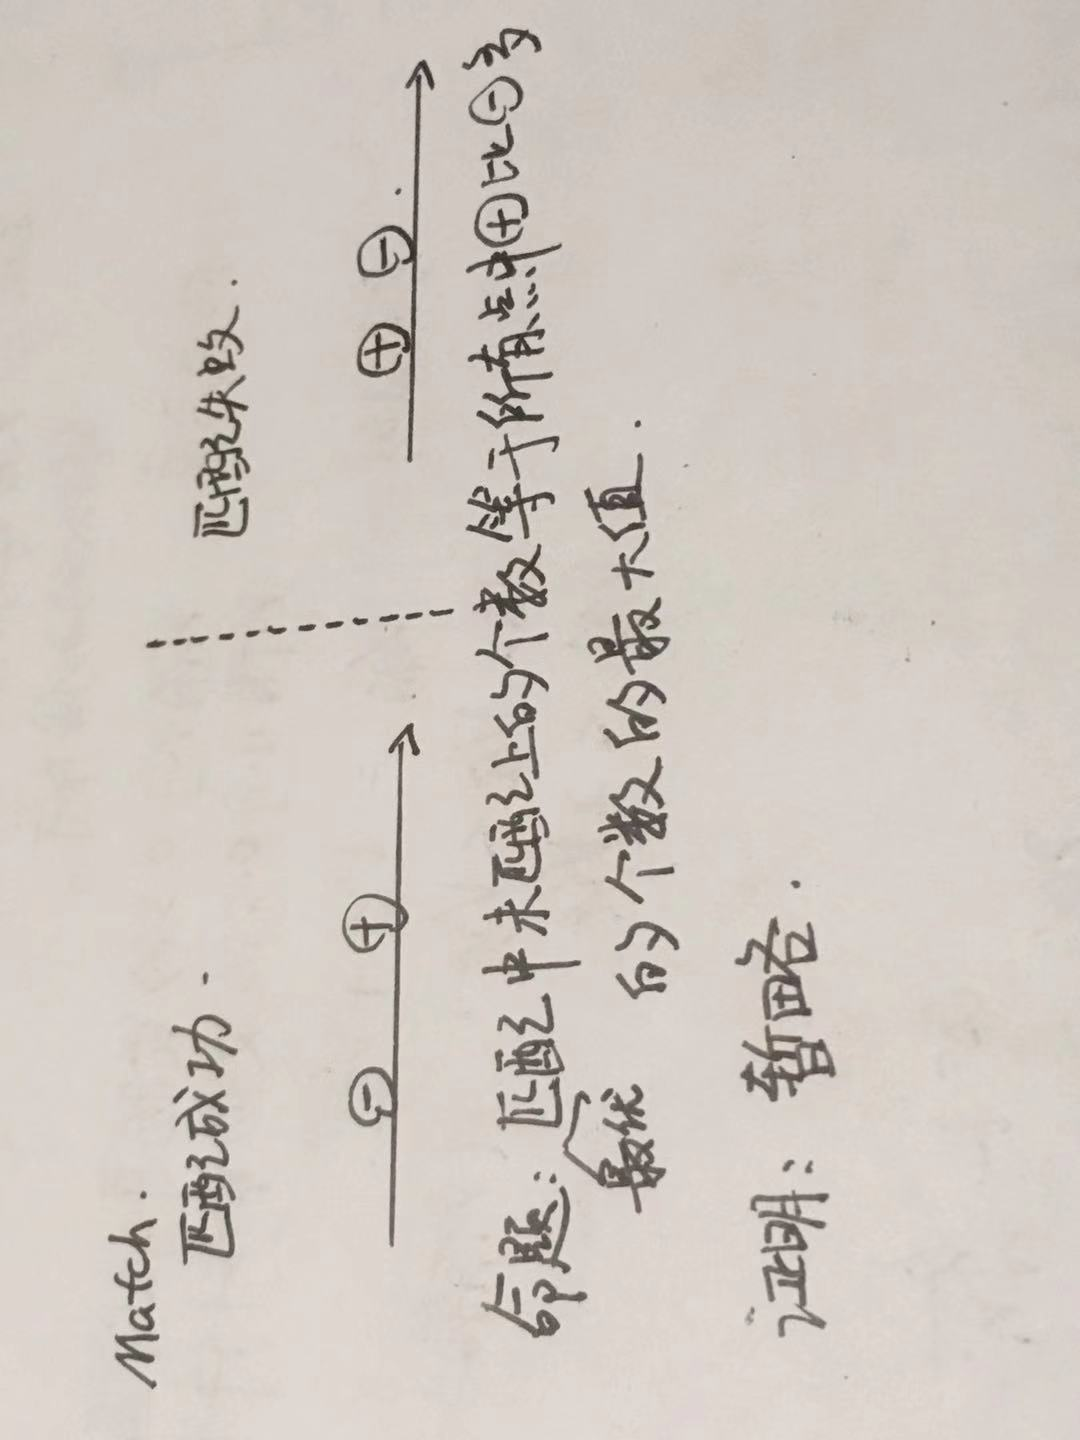 Match.
匹配成功.
匹配失败.
⊖ ⊕
⊕ ⊖
命题: 最优匹配中未匹配上的个数等于所有点中⊕比⊖多
的个数的最大值.
证明: 暂略.